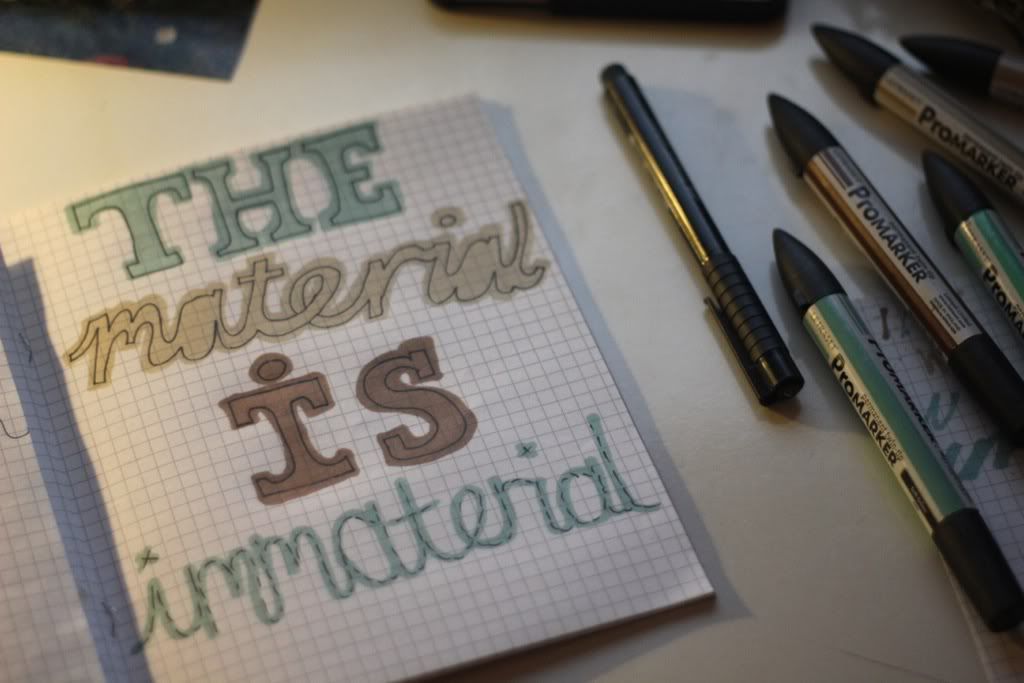 THE
material
is
immaterial
PROMARKER
PROMARKER
PROMARKER
PROMARKER